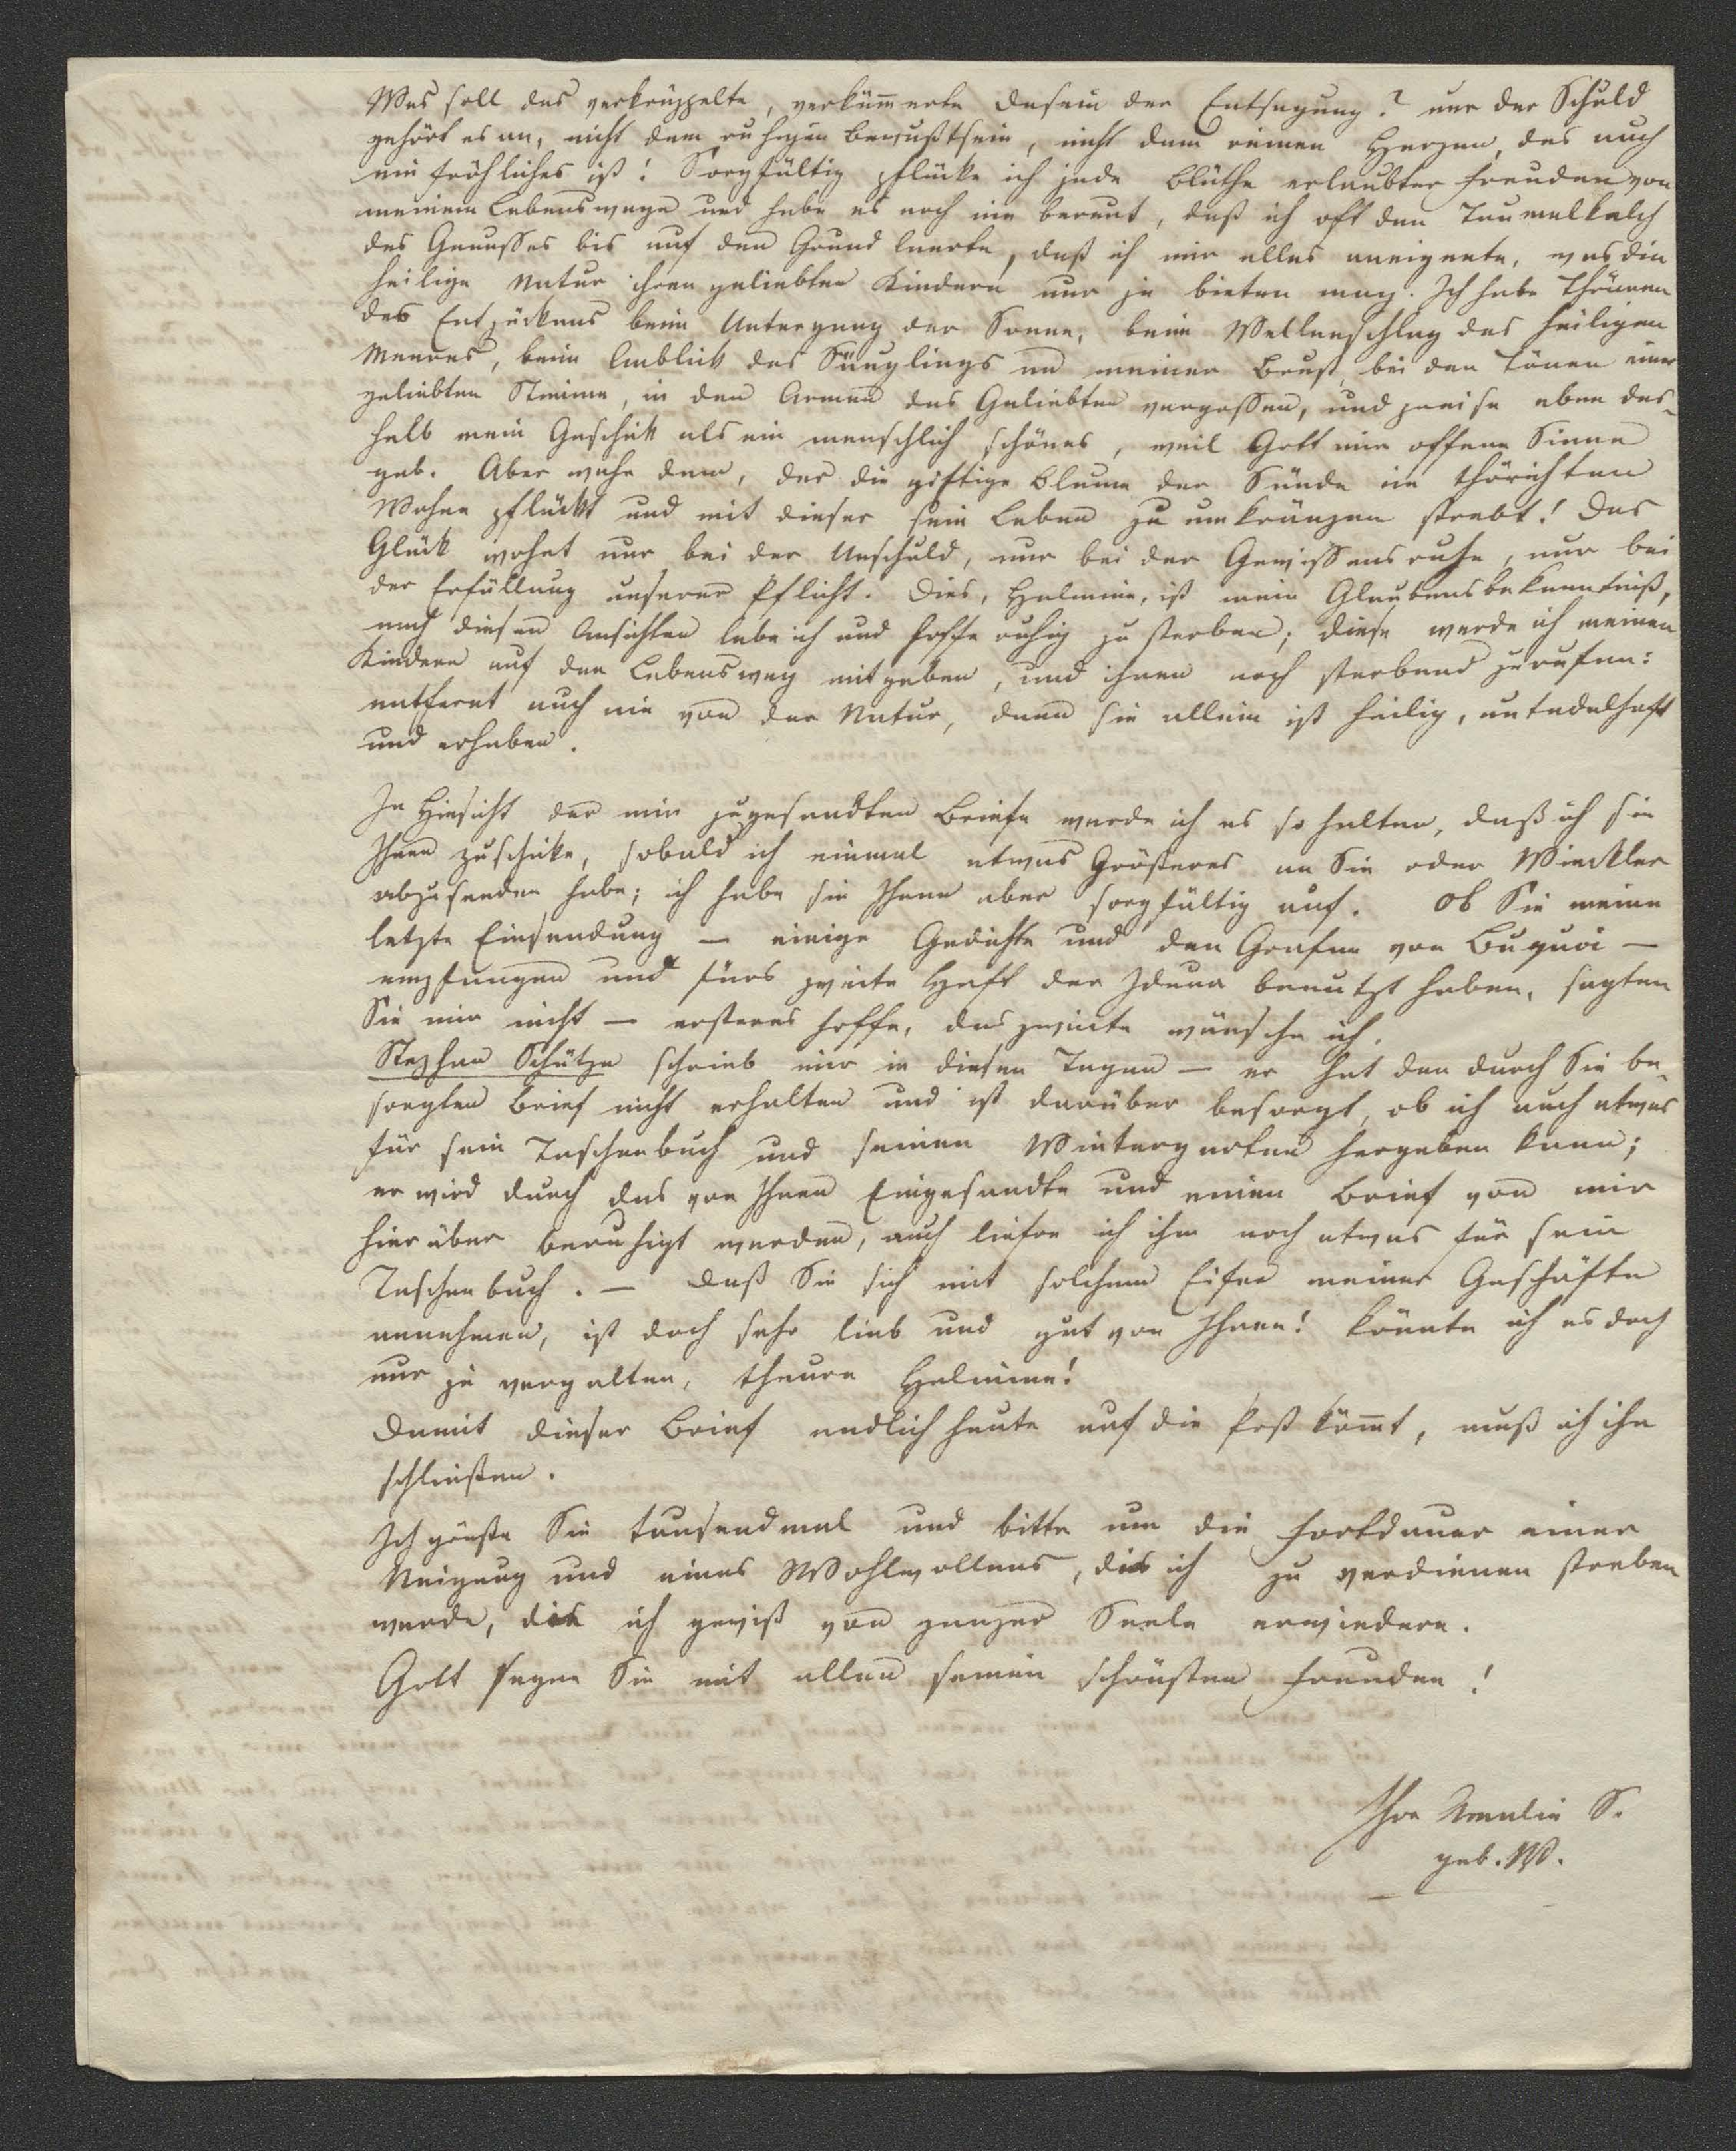 Was soll das verkrüppelte, verkümmerte Dasein der Entsagung? nur der Schuld
gehört es an, nicht dem ruhigen Bewußtsein, nicht dem reinen Herzen, das auch
ein fröhliches ist! Sorgfältig pflücke ich jede Blüthe erlaubter Freuden von
meinem Lebenswege und habe es noch nie bereut, daß ich oft den Taumelkelch
des Genusses bis auf den Grund leerte, daß ich mir alles aneignete, was die
heilige Natur ihren geliebten Kindern nur je bieten mag. Ich habe Thränen
des Entzückens beim Untergang der Sonne, beim Wellenschlag des heiligen
Meeres, beim Anblick des Säuglings an meiner Brust, bei den Tönen einer
geliebten Stimme, in den Armen des Geliebten vergossen, und preise eben des-
halb mein Geschick als ein menschlich schönes, weil Gott mir offene Sinne
gab. Aber wehe dem, der die giftige Blume der Sünde im thörichten
Wahne pflückt und mit dieser sein Leben zu umkränzen strebt! Das
Glück wohnt nur bei der Unschuld, nur bei der Gewissensruhe, nur bei
der Erfüllung unserer Pflicht. Dies, Helmine, ist mein Glaubensbekenntniß,
nach diesen Ansichten lebe ich und hoffe ruhig zu sterben; diese werde ich meinen
Kindern auf den Lebensweg mitgeben, und ihnen noch sterbend zurufen:
entfernt euch nie von der Natur, denn sie allein ist heilig, untadelhaft
und erhaben.
In Hinsicht der mir zugesandten Briefe werde ich es so halten, daß ich sie
Ihnen zuschicke, sobald ich einmal etwas Größeres an Sie oder Winckler
abzusenden habe; ich habe sie Ihnen aber sorgfältig auf. Ob Sie meine
letzte Einsendung — einige Gedichte und den Grafen von Buquoi —
empfangen und fürs zweite Heft der Iduna benutzt haben, sagten
Sie mir nicht — ersteres hoffe, das zweite wünsche ich.
Stephan Schütze schrieb mir in diesen Tagen — er hat den durch Sie be-
sorgten Brief nicht erhalten und ist darüber besorgt, ob ich auch etwas
für sein Taschenbuch und seinen Wintergarten hergeben kann;
er wird durch das von Ihnen Eingesandte und einen Brief von mir
hierüber beruhigt werden, auch liefre ich ihm noch etwas für sein
Taschenbuch. — Daß Sie sich mit solchem Eifer meiner Geschäfte
annehmen, ist doch sehr lieb und gut von Ihnen! könnte ich es doch
nur je vergelten, theure Helmine!
Damit dieser Brief endlich heute auf die Post köm̅t, muß ich ihn
schließen.
Ich grüße Sie tausendmal und bitte um die Fortdauer einer
Neigung und eines Wohlwollens, die ich zu verdienen streben
werde, die ich gewiß von ganzer Seele erwiedere.
Gott segne Sie mit allen seinen schönsten Freuden!
Ihre Amalie S.
geb. W.